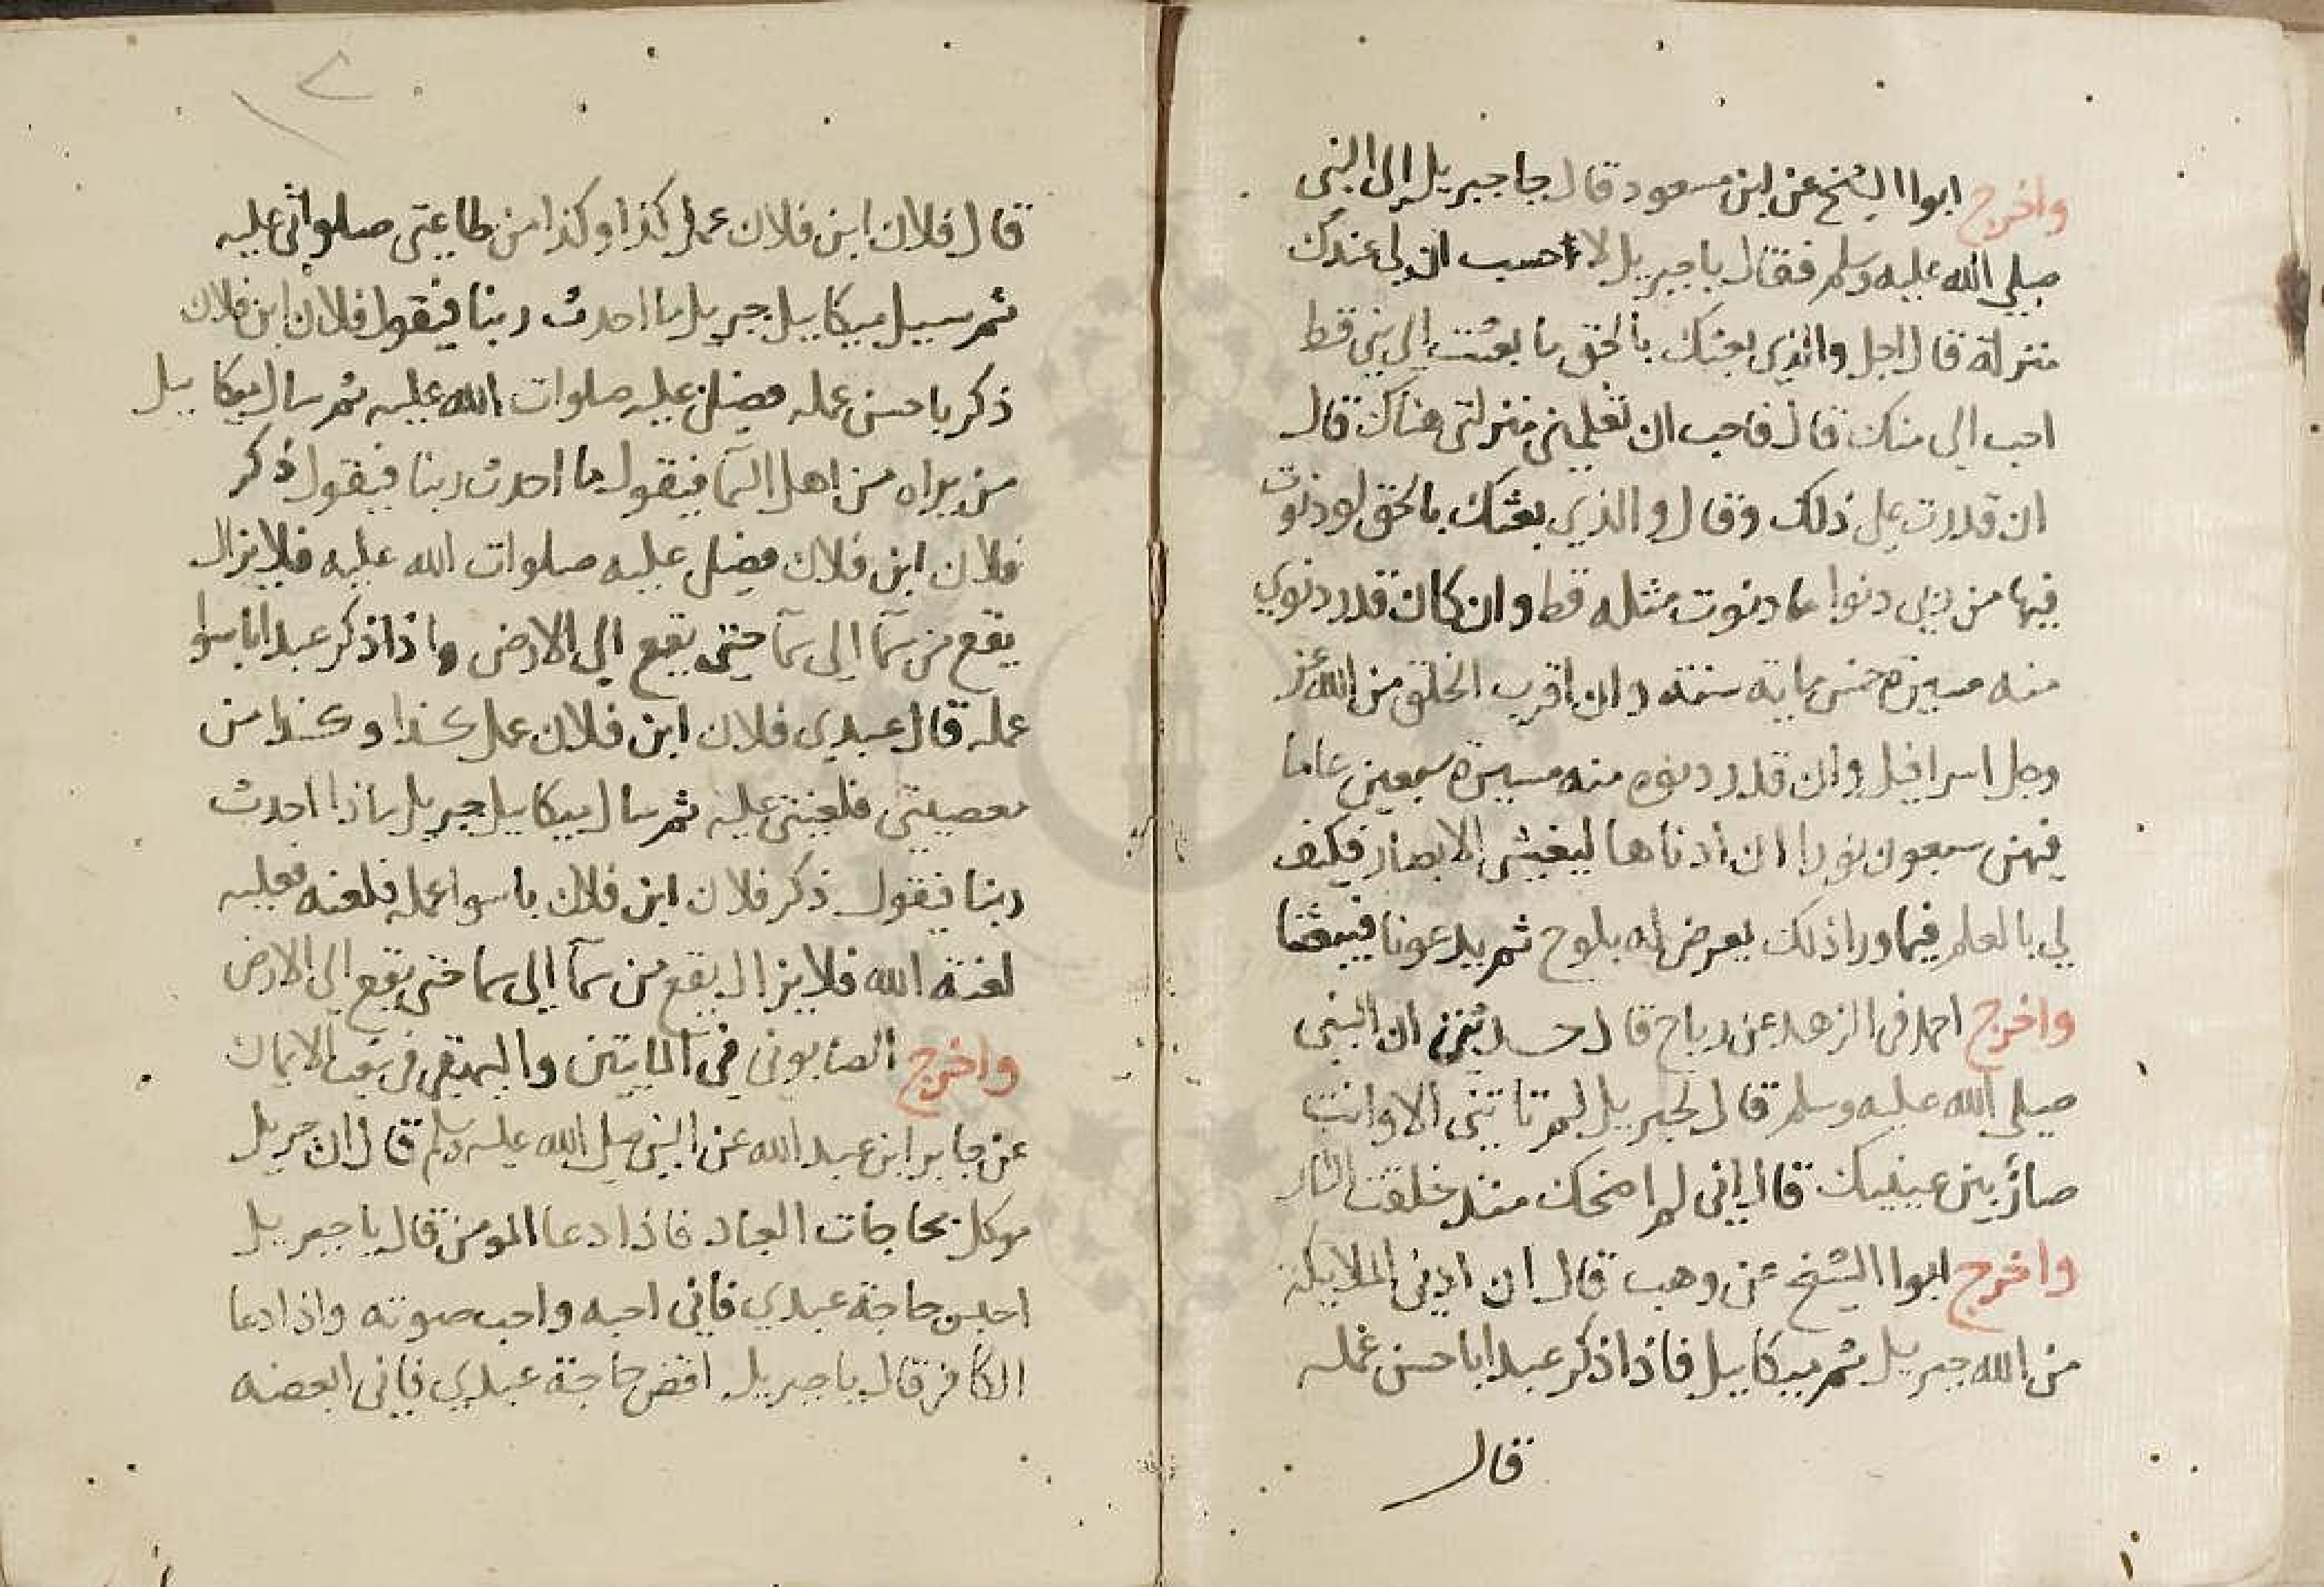 واخرج ابوا الشيخ عن ابن مسعود قال جا جبريل الى النبي
صلي الله عليه وسلم فقال يا جبريل لا احسب ان لي عندك
منزلة قال اجل والذي بعثك بالحق ما بعثت الي نبي قط
احب الي منك قال فاحب ان تعلمني منزلتي هناك قال
ان قدرت علي ذلك وقال والذي بعثك بالحق لو دنوت
فيها من ربي دنوا ما دنوت مثله قط وان كان قدر دنوي
منه مسيرة خمس ماية سنة وان اقرب الخلق من الله عز
وجل اسرافيل وان قدر دنوه منه مسيرة سبعين عاما
فيهن سبعون نورا ان ادناها ليغشي الابصار فكيف
لي بالعلم فيما ورا ذلك يعرض له بلوح ثم يدعونا فيبعثنا
واخرج احمد في الزهد عن رباح قال حديثن ان النبي
صلي الله عليه وسلم قال لجبريل لم تاتيني الا وانت
صار بين عينيك قال اني لم اضحك منذ خلقت النار
واخرج ابوا الشيخ عن وهب قال ان ادني الملايكة
من الله جبريل ثم ميكاييل فاذا ذكر عبدا باحسن عمله
قال
قال فلان ابن فلان عمل كذا وكذا من طاعتي صلواتي عليه
ثم سييل ميكاييل جبريل ما احدث ربنا فيقول فلان ابن فلان
ذكر باحسن عمله فصلي عليه صلوات الله عليه ثم سال ميكاييل
من يراه من اهل السما فيقول ما احدث ربنا فيقول ذكر
فلان ابن فلان فصلي عليه صلوات الله عليه فلا يزال
يقع من سما الي سما حتي يقع الي الارض واذا ذكر عبدا باسوا
عمله قال عبدي فلان ابن فلان عمل كذا وكذا من
معصيتي فلعنتي عليه ثم سال ميكاييل جبريل ماذا احدث
ربنا فيقول ذكر فلان ابن فلان باسوا عمله فلعنه فعليه
لعنة الله فلا يزال يقع من سما الي سما حتي يقع الي الارض
واخرج الصابوني في المايتين والبيهقي في شعب الايمان
عن جابر ابن عبد الله عن النبي صلي الله عليه وسلم قال ان جبريل
موكل بحاجات العباد فاذا دعا المومن قال يا جبريل
احبس حاجة عبدي فاني احبه واحب صوته واذا دعا
الكافر قال يا جبريل اقض حاجة عبدي فاني ابغضه